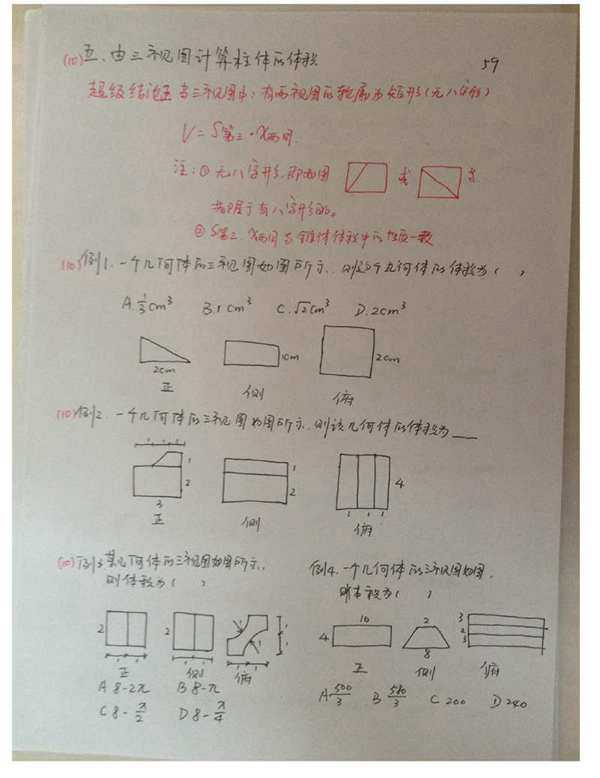 (10) 五、由三视图计算柱体的体积
59
超级结论五 当三视图中,有两视图的轮廓为矩形(无八字形)
V=S第三·X两同
注:① 无八字形,即如图 或 等
都属于有八字形的。
② S第三、X两同与锥体体积中的性质一致
(10)例1.一个几何体的三视图如图所示,则这个几何体的体积为( )
A. 1/3 cm³ B. 1 cm³ C. √2 cm³ D. 2cm³
2cm 1cm 2cm
正 侧 俯
(10)例2.一个几何体的三视图如图所示,则该几何体的体积为___
1 1 1
1 2 3
1 2
4
1 1 1
正 侧 俯
(10)例3.某几何体的三视图如图所示,
则体积为( )
2 1 1 2 1 1 1 1 1 1
正 侧 俯
A 8-2π B 8-π
C 8-π/2 D 8-π/4
例4.一个几何体的三视图如图,
则体积为( )
10 4 2 8 3 2 3
正 侧 俯
A 500/3 B 580/3 C 200 D 240